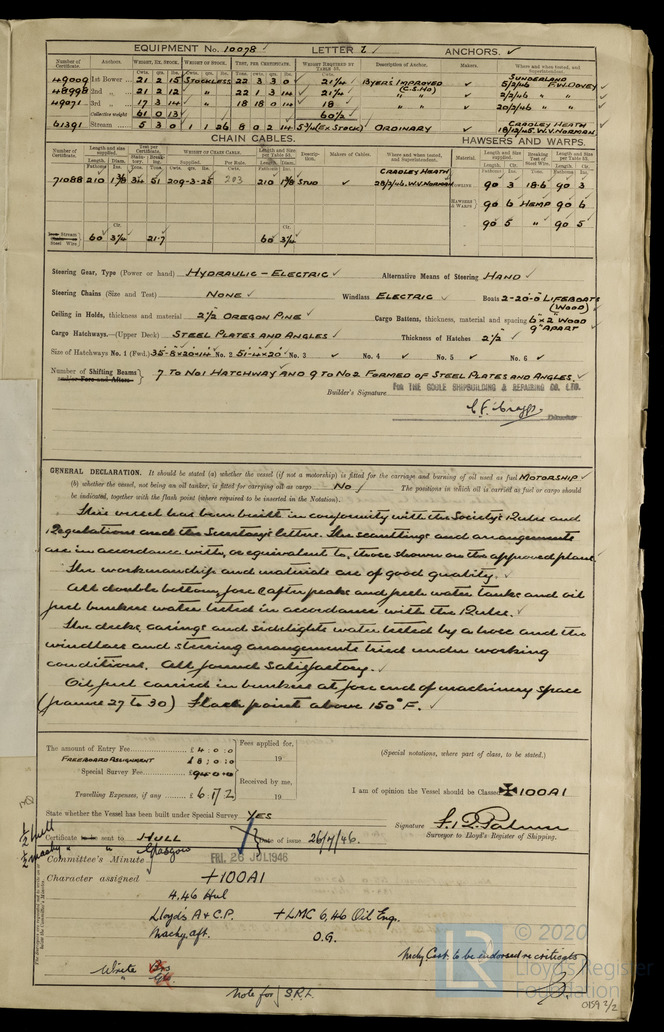 EQUIPMENT No. 10078 LETTER ANCHORS.
Number of Certificate. Anchors. Weight, Ex. Stock. Weight of Stock. Test, per Certificate. Weight Required by Table 53. Description of Anchor. Makers. Where and when tested, and Superintendent.
Cwts. qrs. lbs.
49009 1st Bower 21 2 15 STOCKLESS 22 3 3 0 21¼ BYERS' IMPROVED SUNDERLAND 5/2/46 F.W. DOVEY
48998 2nd „ 21 2 12 „ 22 1 3 14 21¼ 2/2/46 „ „
49071 3rd „ 17 3 14 „ 18 18 0 14 18 „ „ 20/2/46 „ „
Collective weight 61 0 13 60½
61391 Stream 5 3 0 1 1 26 8 0 2 14 5¾ (EX STOCK) ORDINARY CRADLEY HEATH 18/12/45. W.V. NORMAN
CHAIN CABLES. HAWSERS AND WARPS.
Number of Certificate. Length and size supplied. Test per Certificate. Weight of Chain Cable. Length and Size per Table 53. Description. Makers of Cables. Where and when tested, and Superintendent. Material. Length and Size supplied. Breaking Test of Steel Wire. Length and Size per Table 53.
Length. Diam. Supplied. Per Rule. Length. Diam. Length. Cir. Length. Cir.
71088 210 51 209-3-25 203 210 STUD CRADLEY HEATH 28/2/46. W.V. NORMAN
90 3 18·6 90 3
HAWSERS & WARPS 90 6 HEMP 90 6
90 5 „ 90 5
Stream Steel Wire 60 3¼ 21·7 60 3¼
Steering Gear, Type (Power or hand) HYDRAULIC – ELECTRIC Alternative Means of Steering HAND
Steering Chains (Size and Test) NONE Windlass ELECTRIC Boats 2-20·0 LIFEBOATS (WOOD)
Ceiling in Holds, thickness and material 2½" OREGON PINE Cargo Battens, thickness, material and spacing 6" x 2" WOOD 9" APART
Cargo Hatchways.—(Upper Deck) STEEL PLATES AND ANGLES Thickness of Hatches 2½"
Size of Hatchways No. 1 (Fwd.) 35·8 x 20·14 No. 2 51·4 x 20' No. 3 No. 4 No. 5 No. 6
Number of Shifting Beams and/or Fore and Afters 7 TO No1 HATCHWAY AND 9 TO No2 FORMED OF STEEL PLATES AND ANGLES.
For THE GOOLE SHIPBUILDING & REPAIRING CO. LTD.
Builder's Signature
GENERAL DECLARATION. It should be stated (a) whether the vessel (if not a motorship) is fitted for the carriage and burning of oil used as fuel MOTORSHIP
(b) whether the vessel, not being an oil tanker, is fitted for carrying oil as cargo No The positions in which oil is carried as fuel or cargo should
be indicated, together with the flash point (where required to be inserted in the Notation).
This vessel has been built in conformity with the Society's Rules and
Regulations and the Secretary's letters. The scantlings and arrangements
are in accordance with, or equivalent to, those shown on the approved plans.
The workmanship and materials are of good quality.
All double bottom, fore & after peaks and fresh water tanks and oil
fuel bunkers water tested in accordance with the Rules.
The decks, casings and sidelights water tested by a hose and the
windlass and steering arrangements tried under working
conditions. All found satisfactory.
Oil fuel carried in bunkers at fore end of machinery space
(frames 27 to 30) Flash point above 150° F.
The amount of Entry Fee £ 4 : 0 : 0 Fees applied for, 19
FREEBOARD ASSIGNMENT £ 8 : 0 : 0
Special Survey Fee £ 94 : 0 : 0 Received by me,
Travelling Expenses, if any £ 6 : 17 : 2 19
(Special notations, where part of class, to be stated.)
I am of opinion the Vessel should be Classed ✠100A1
State whether the Vessel has been built under Special Survey YES
Signature
Surveyor to Lloyd's Register of Shipping.
½ Hull
Certificate to be sent to HULL Date of issue 26/7/46.
½ Machy „ „ Glasgow
Committee's Minute FRI. 26 JUL 1946
Character assigned +100A1
4,46 Hul
Lloyd's A & C.P. +LMC 6,46 Oil Eng.
Machy aft. O.G.
Machy. Cert. to be endorsed re criticals
Write
Note for S.R.L.
LR
© 2020
Lloyd's Register
Foundation
0159 2/2